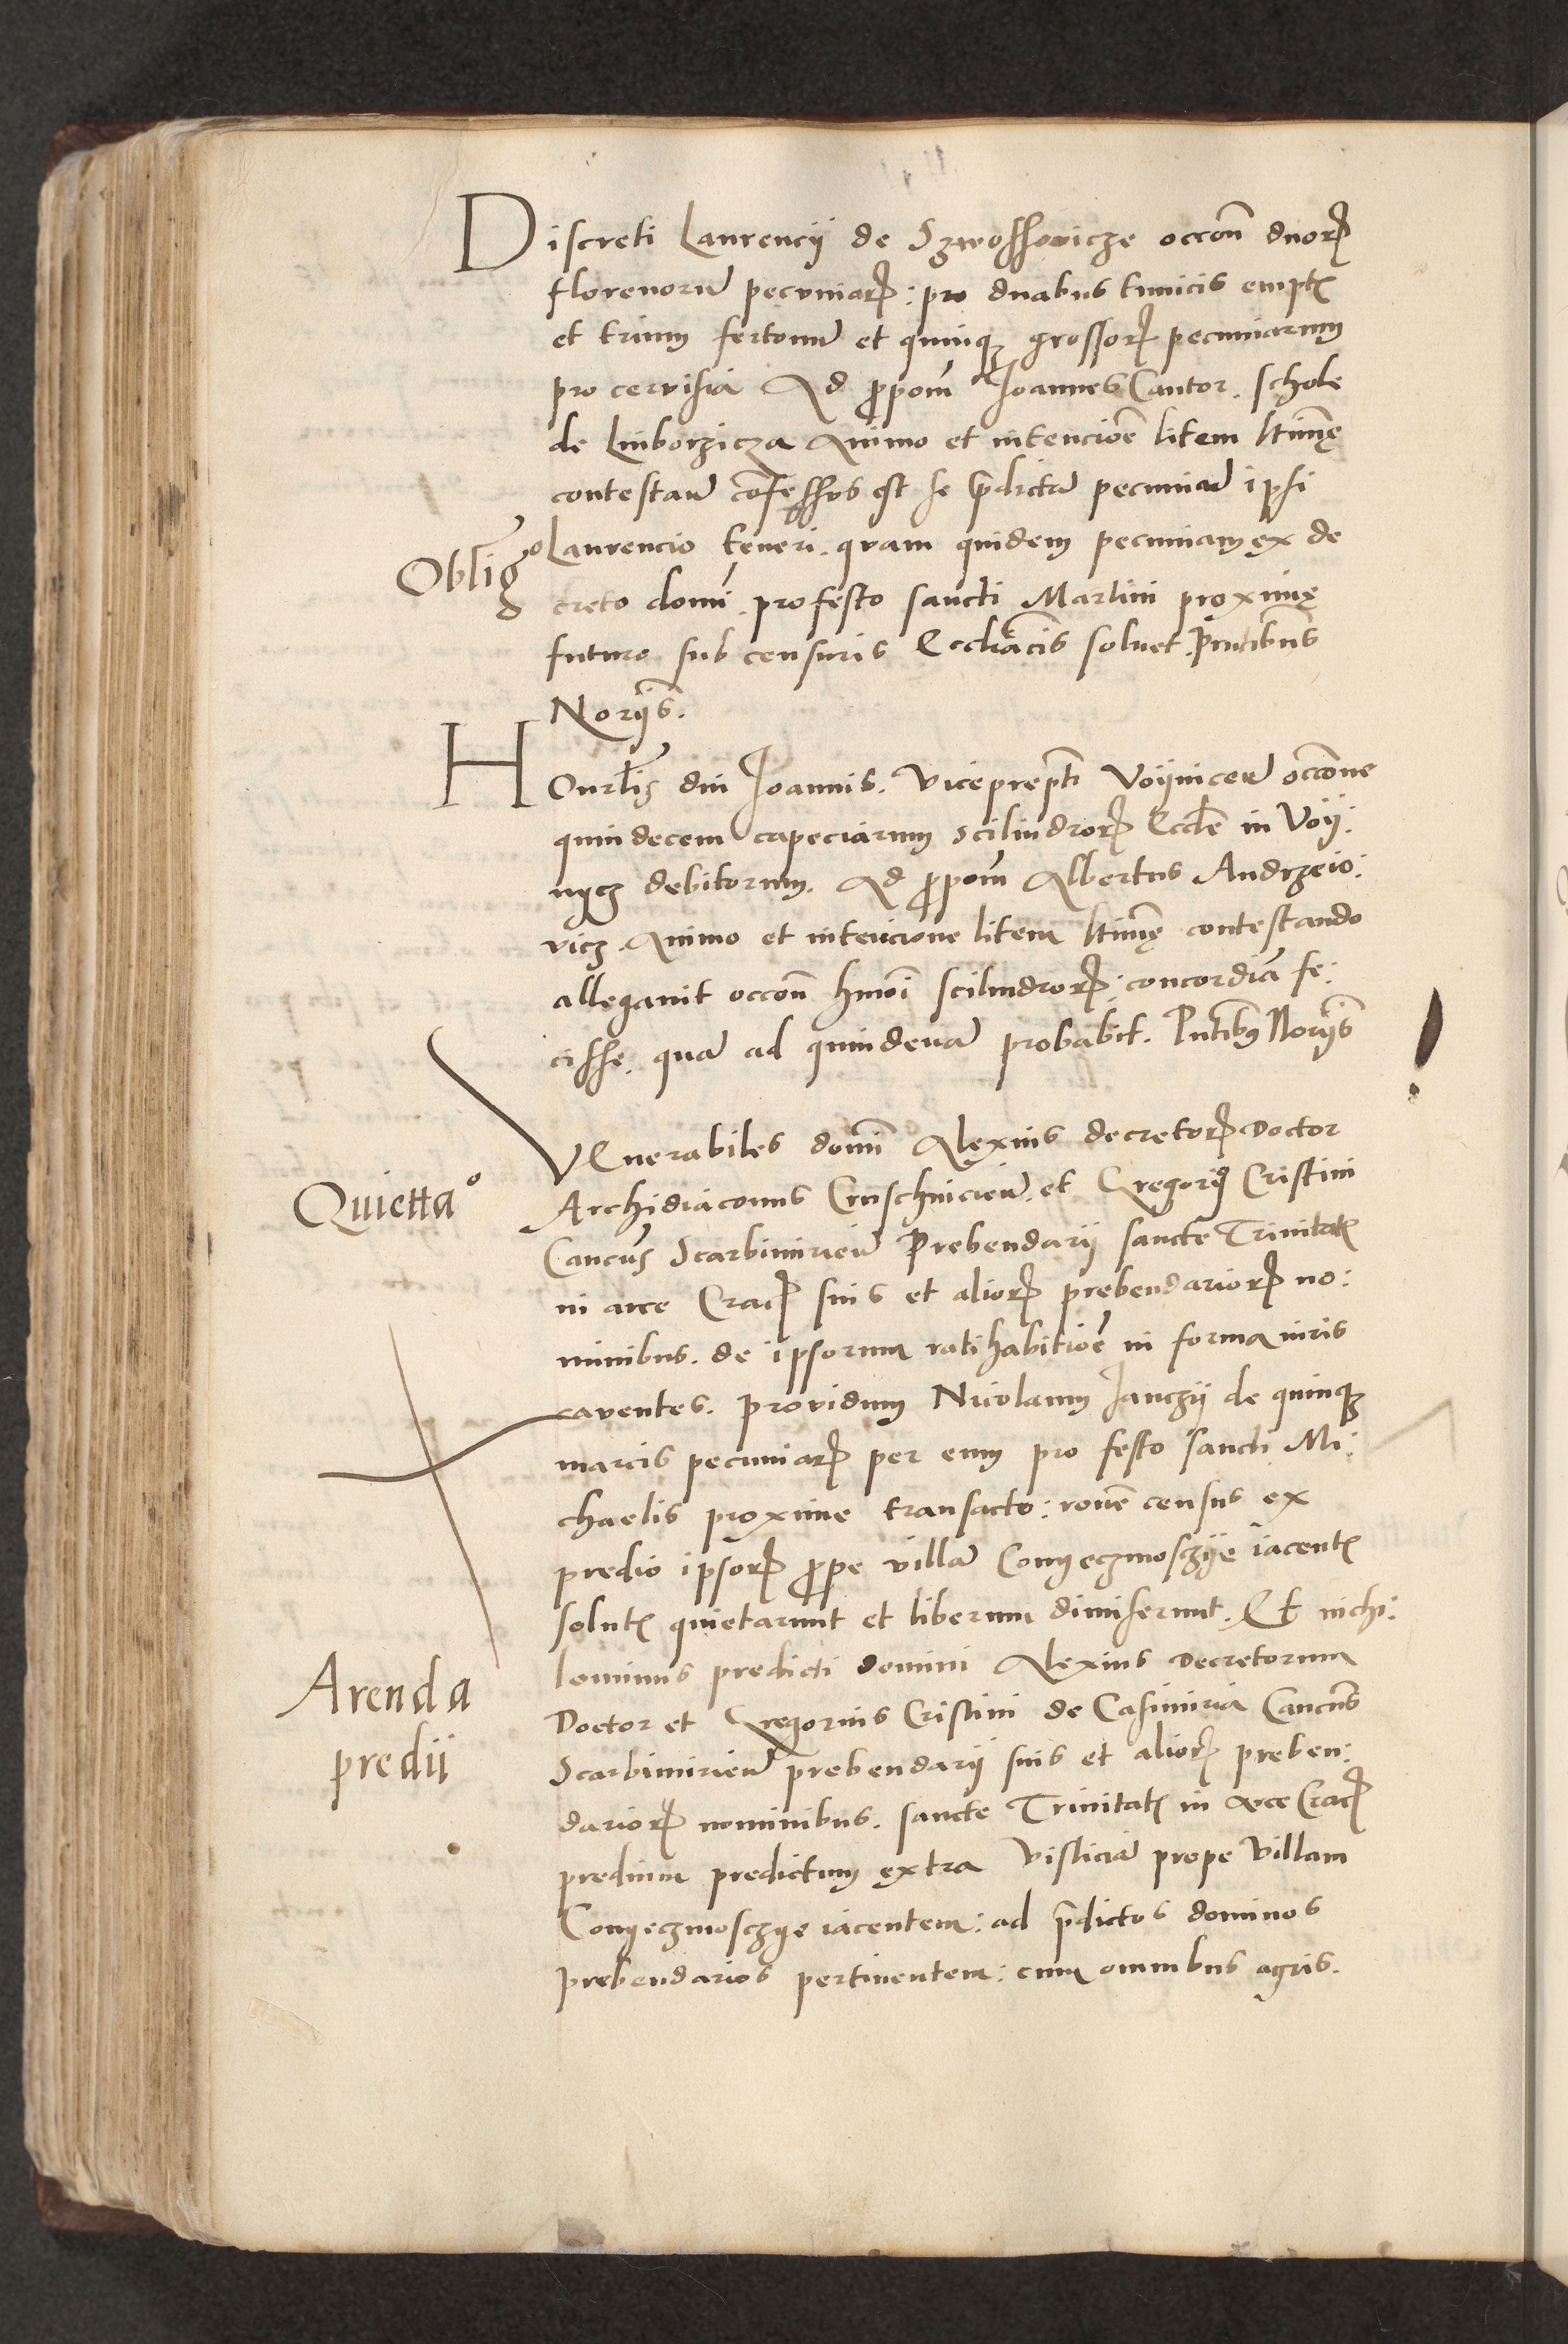 Discreti Laurencij de Szwossowicze occoñ duorꝝ
florenorũ pecuniarꝝ : pro duabus tunicis emptꝭ
et trium fertonũ et quinqꝫ grossorꝝ pecuniarum
pro cervisia Ad ꝓpoñ Joannes Cantor . schole
de Luborzicza Animo et intencioẽ litem ltimẽ
contestanđ cõfessus est se p̃dictã pecuniã ipsi
Obligᵒ
Laurencio teneri . quam quidem pecuniam ex de
creto domĩ . pro festo sancti Martini proxime
futuro sub censuris Eccl̃iacis soluet . Pñtibus
Norijs .
HOnrl̃is dñi Joannis . viceprepti Voijniceñ occõne
quindecem capeciarum scilindrorꝝ Eccl̃e in Voij:
nycz debitorum . Ad ꝓpoñ Albertus Andrzeio:
vicz . Animo et intencione litem ltimẽ contestando
allegavit occoñ hmõi scilindrorꝝ : concordiã fe:
cisse . quã ad quindenã probabit . Pñtibus Norijs
VEnerabiles domĩ Alexius decretorꝝ Doctor
Quiettaᵒ
Archidiaconus Cruschvicieñ . et Gregoriꝰ Cristini
Cancus Scarbimirieñ Prebendarij sancte Trinitatꝭ
in arce Cracꝭ suis et aliorꝝ prebendariorꝝ no:
minibus . de ipsorum ratihabitioẽ in forma iuris
caventes . providum Nicolaum Janczij de quinqꝫ
marcis pecuniarꝝ per eum pro festo sancti Mi:
chaelis proxime transacto : roñe census ex
predio ipsorꝝ ꝓpe villã Conyeczmosczije iacentꝭ
solutꝭ quietarunt et liberum dimiserunt . Et nichi:
lominus predicti domini Alexius Decretorum
Arenda
predii
Doctor et Gregorius Cristini de Casimiria Cancus
Scarbimirieñ prebendarij suis et aliorꝝ preben:
dariorꝝ nominibus . sancte Trinitatꝭ in Arce Cracꝭ
predium predictum extra Visliciã prope Villam
Conyeczmosczye iacentem : ad p̃dictos dominos
prebendarios pertinentem : cum omnibus agris .